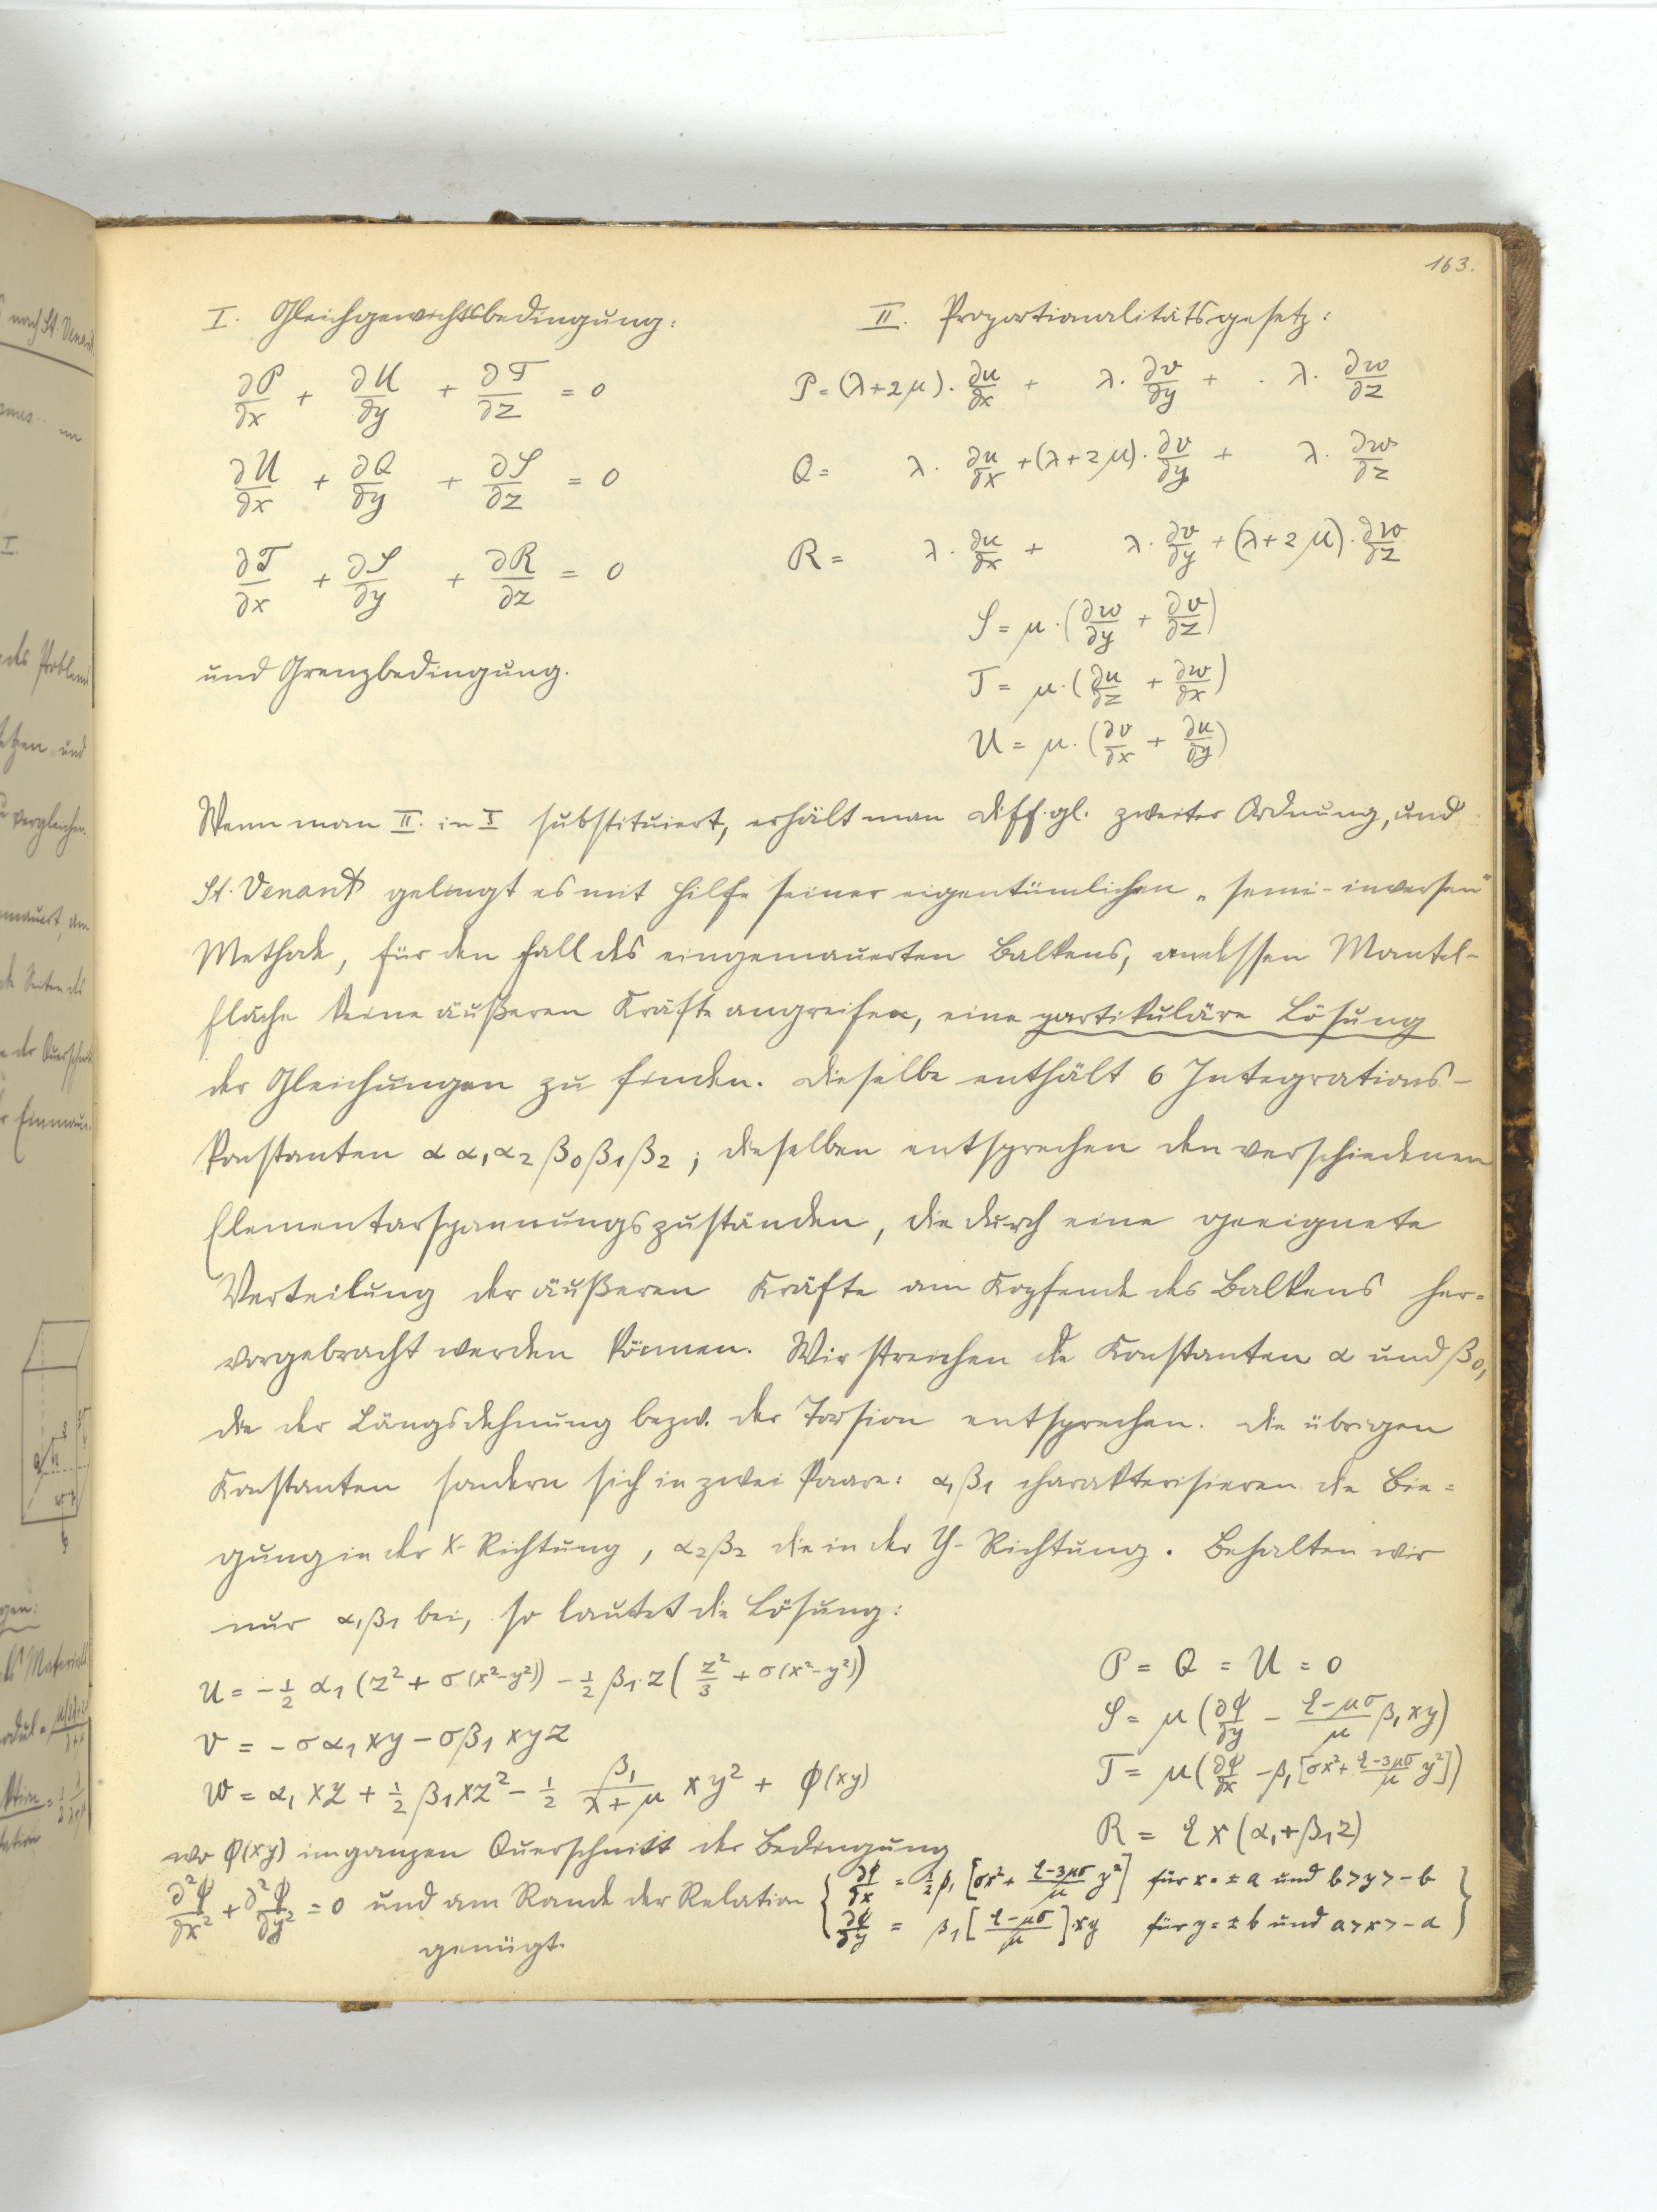 nach St. Venant
des Problems
und
vergleichen
163.
I. Gleichgewichtsbedingung:
∂P/∂x + ∂U/∂y + ∂T/∂z = 0
∂U/∂x + ∂Q/∂y + ∂S/∂z = 0
∂T/∂x + ∂S/∂y + ∂R/∂z = 0
und Grenzbedingung.
II. Proportionalitätsgesetz:
P = (λ+2μ)· ∂u/∂x + λ· ∂v/∂y + · λ· ∂w/∂z
Q = λ· ∂u/∂x + (λ+2μ)· ∂v/∂y + λ· ∂w/∂z
R = λ· ∂u/∂x + λ· ∂v/∂y + (λ+2μ)· ∂w/∂z
S = μ·(∂w/∂y + ∂v/∂z)
T = μ·(∂u/∂z + ∂w/∂x)
U = μ·(∂v/∂x + ∂u/∂y)
Wenn man II. in I substituiert, erhält man Diff.gl. zweiter Ordnung, und
St. Venant gelingt es mit Hilfe seiner eigentümlichen „semi-inversen"
Methode, für den Fall des eingemauerten Balkens, an dessen Mantel-
fläche keine äußeren Kräfte angreifen, eine partikuläre Lösung
der Gleichungen zu finden. Dieselbe enthält 6 Integrations-
konstanten α α₁ α₂ β₀ β₁ β₂; dieselben entsprechen den verschiedenen
Elementarspannungszuständen, die durch eine geeignete
Verteilung der äußeren Kräfte am Kopfende des Balkens her=
vorgebracht werden können. Wir streichen die Konstanten α und β₀,
die der Längsdehnung bezw. der Torsion entsprechen. Die übrigen
Konstanten sondern sich in zwei Paare: α₁β₁ charakterisieren die Bie=
gung in der X-Richtung, α₂β₂ die in der Y-Richtung. Behalten wir
nur α₁β₁ bei, so lautet die Lösung:
u = -½ α₁ (z² + σ(x²-y²)) - ½ β₁·z (z²/3 + σ(x²-y²))
v = -σα₁xy - σβ₁xyz
w = α₁xz + ½ β₁xz² - ½ β₁/(λ+μ) xy² + ϕ(xy)
P = Q = U = 0
S = μ(∂ϕ/∂y - (ℰ-μσ)/μ β₁xy)
T = μ(∂ϕ/∂x - β₁[σx² + (ℰ-3μσ)/μ y²])
R = ℰx(α₁+β₁z)
wo ϕ(xy) im ganzen Querschnitt der Bedingung
∂²ϕ/∂x² + ∂²ϕ/∂y² = 0 und am Rande der Relation { ∂ϕ/∂x = ½β₁[σx² + (ℰ-3μσ)/μ y²] für x = ±a und b>y>-b
∂ϕ/∂y = β₁[(ℰ-μσ)/μ]·xy für y = ±b und a>x>-a }
genügt.